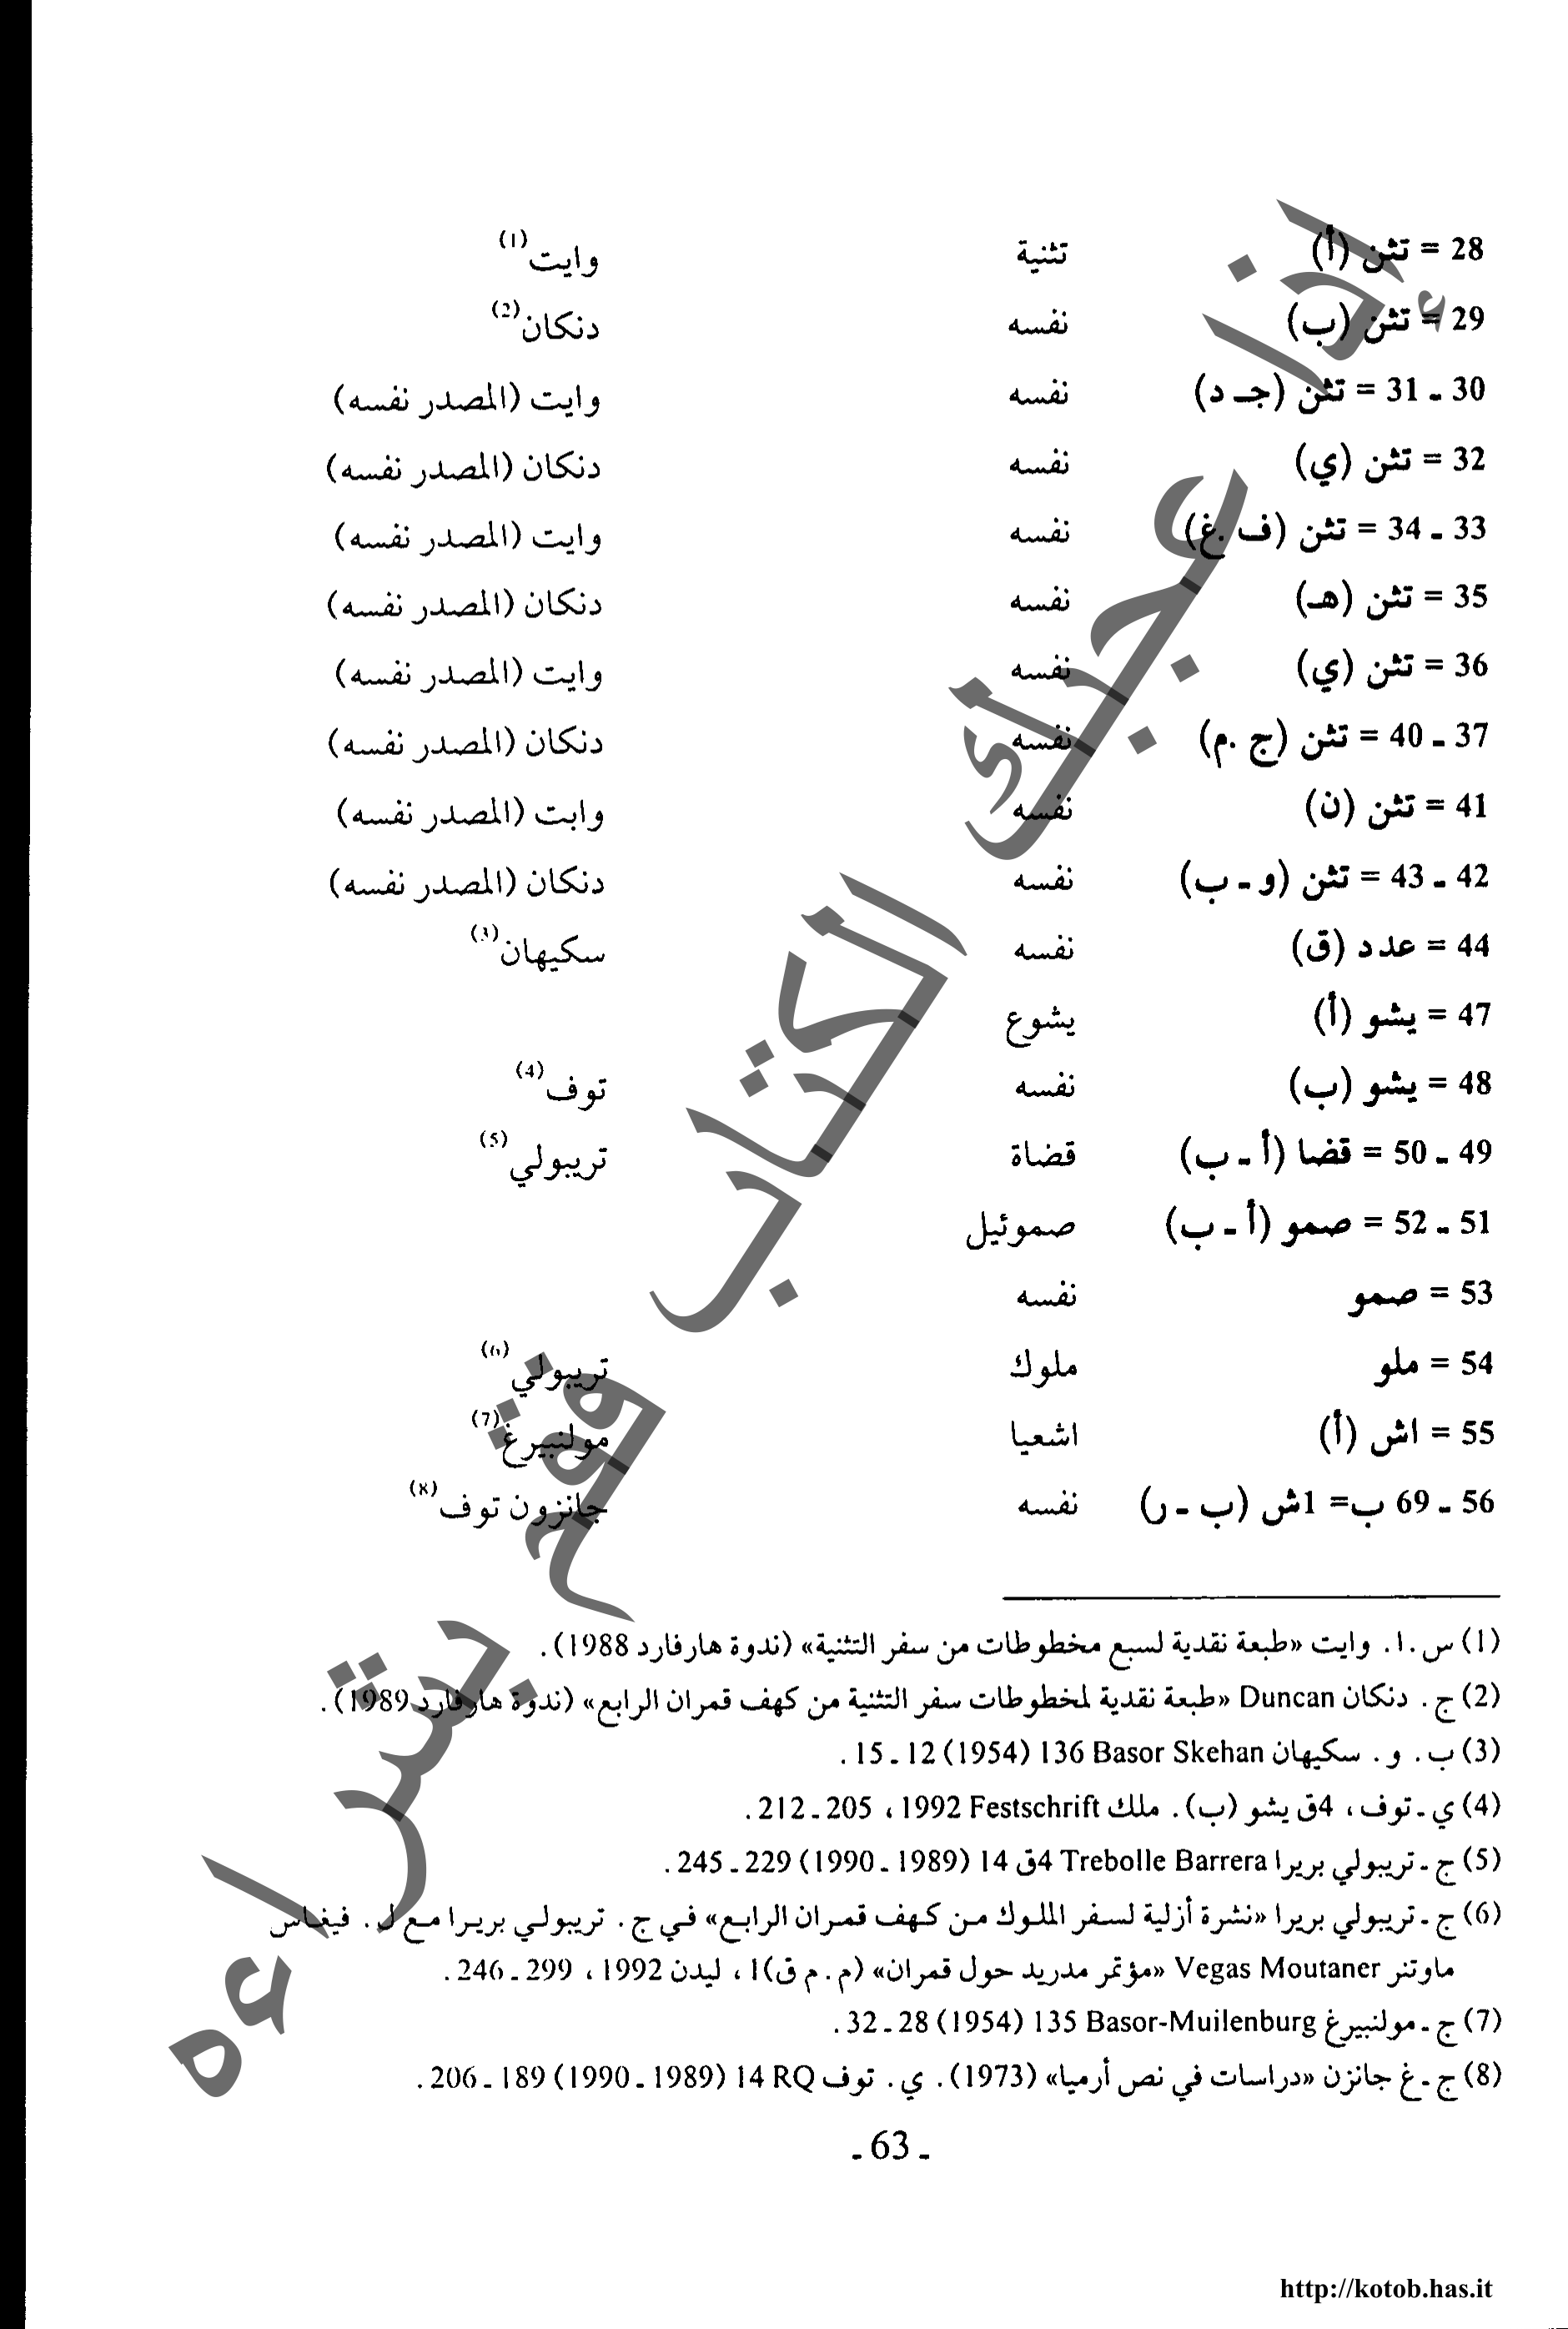 28 = تثن (أ) تثنية وايت(1)
29 = تثن (ب) نفسه دنكان(2)
30 ـ 31 = تثن (جـ د) نفسه وايت (المصدر نفسه)
32 = تثن (ي) نفسه دنكان (المصدر نفسه)
33 ـ 34 = تثن (ف .غ) نفسه وايت (المصدر نفسه)
35 = تثن (هـ) نفسه دنكان (المصدر نفسه)
36 = تثن (ي) نفسه وايت (المصدر نفسه)
37 ـ 40 = تثن (ج .م) نفسه دنكان (المصدر نفسه)
41 = تثن (ن) نفسه وابت (المصدر نفسه)
42 ـ 43 = تثن (و ـ ب) نفسه دنكان (المصدر نفسه)
44 = عدد (ق) نفسه سكيهان(3)
47 = يشو (أ) يشوع
48 = يشو (ب) نفسه توف(4)
49 ـ 50 = قضا (أ ـ ب) قضاة تريبولي(5)
51 ـ 52 = صمو (أ ـ ب) صموئيل
53 = صمو نفسه
54 = ملو ملوك تريبولي(6)
55 = اش (أ) اشعيا مولنبيرغ(7)
56 ـ 69 ب= 1ش (ب ـ ر) نفسه جانزون توف(8)
(1) س.ا. وايت «طبعة نقدية لسبع مخطوطات من سفر التثنية» (ندوة هارفارد 1988).
(2) ج. دنكان Duncan «طبعة نقدية لمخطوطات سفر التثنية من كهف قمران الرابع» (ندوة هارفارد 1989).
(3) ب. و. سكيهان Basor Skehan 136 (1954) 12 ـ 15.
(4) ي ـ توف، 4ق يشو (ب). ملك Festschrift 1992، 205 ـ 212.
(5) ج ـ تريبولي بريرا Trebolle Barrera 4ق 14 (1989 ـ 1990) 229 ـ 245.
(6) ج ـ تريبولي بريرا «نشرة أزلية لسفر الملوك من كهف قمران الرابع» في ج. تريبولي بريرا مع ل. فيغاس
ماوتنر Vegas Moutaner «مؤتمر مدريد حول قمران» (م.م ق)1، ليدن 1992، 299 ـ 246.
(7) ج ـ مولنبيرغ Basor-Muilenburg 135 (1954) 28 ـ 32.
(8) ج ـ غ جانزن «دراسات في نص أرميا» (1973). ي. توف RQ 14 (1989 ـ 1990) 189 ـ 206.
ـ 63 ـ
إذا عجبك الكتاب قم بشراءه
http://kotob.has.it